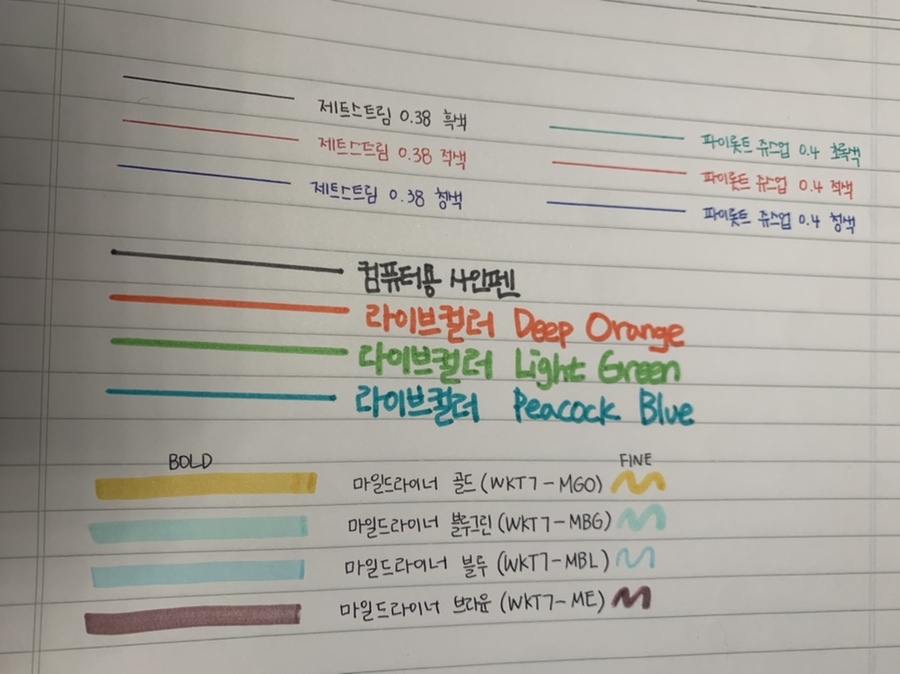 제트스트림 0.38 흑색
제트스트림 0.38 적색
제트스트림 0.38 청색
파이롯트 쥬스업 0.4 초록색
파이롯트 쥬스업 0.4 적색
파이롯트 쥬스업 0.4 청색
컴퓨터용 사인펜
라이브컬러 Deep Orange
라이브컬러 Light Green
라이브컬러 Peacock Blue
BOLD FINE
마일드라이너 골드 (WKT7-MGO)
마일드라이너 블루그린 (WKT7-MBG)
마일드라이너 블루 (WKT7-MBL)
마일드라이너 브라운 (WKT7-ME)